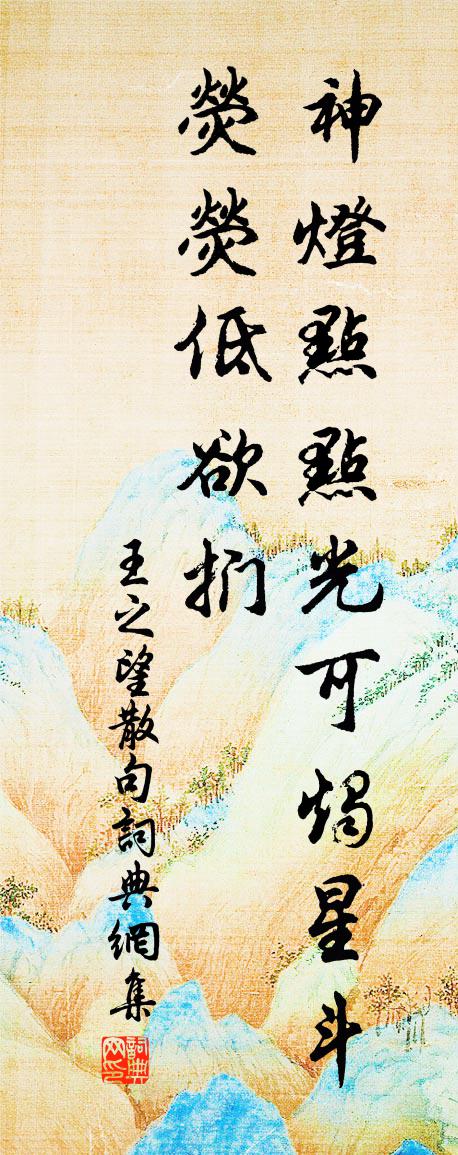 神燈點點光可燭星斗
熒熒低欲捫
王之望散句詞典網集
詞典网印